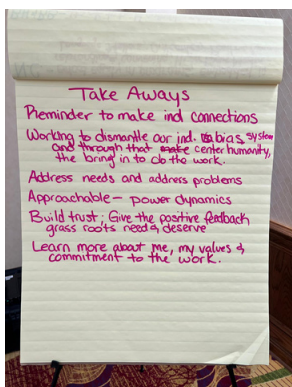 Take Aways
Reminder to make ind connections
Working to dismantle our ind. bias, system
and through that center humanity,
the bring in to do the work.
Address needs and address problems
Approachable - power dynamics
Build trust; Give the positive feedback
grass roots need & deserve
Learn more about me, my values &
commitment to the work.